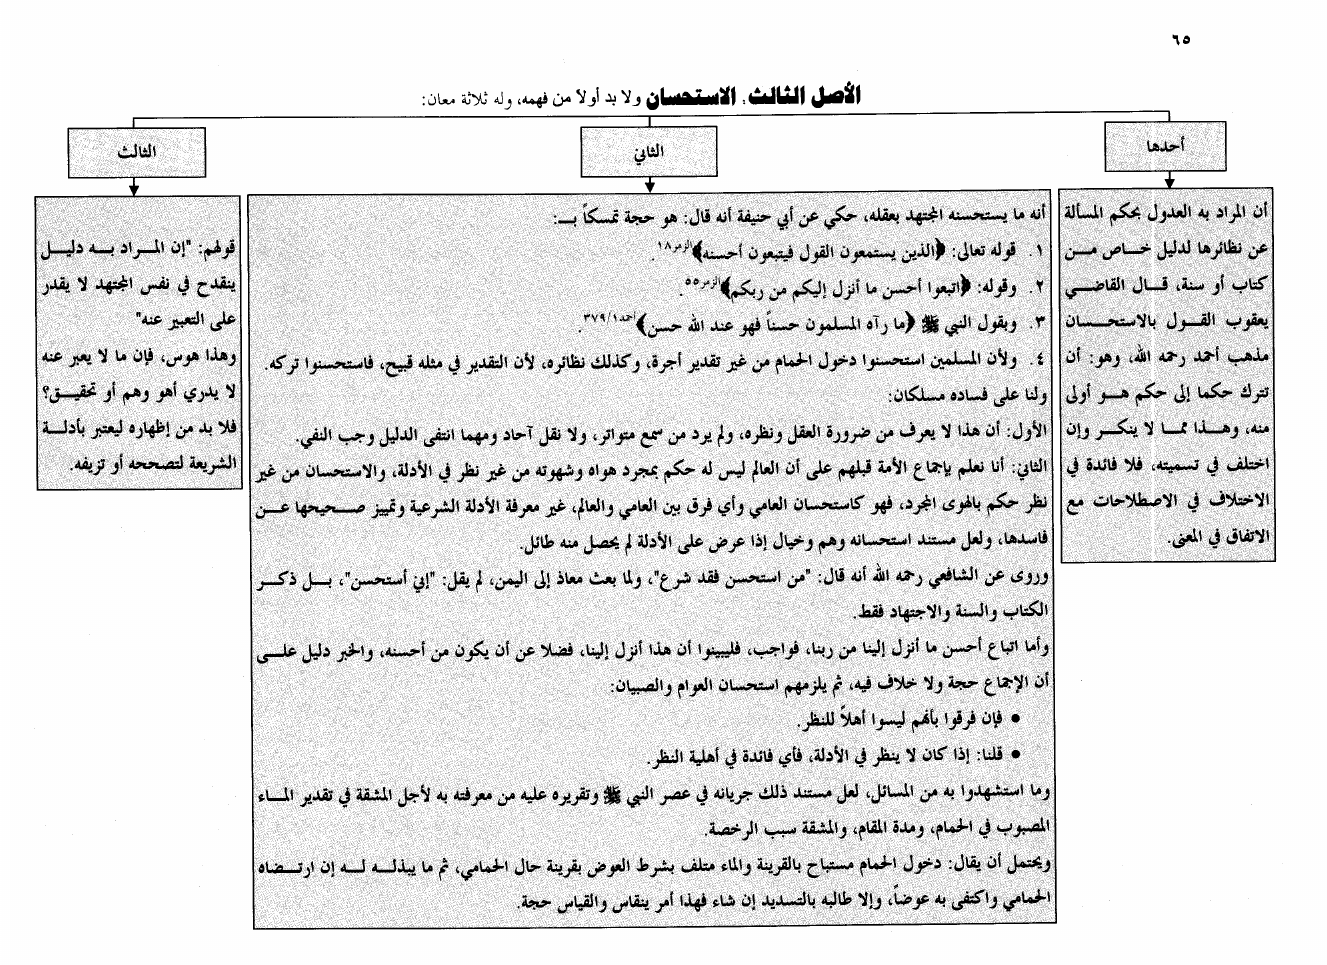 ٦٥
الأصل الثالث، الاستحسان ولا بد أولاً من فهمه، وله ثلاثة معان:
أحدها
أن المراد به العدول بحكم المسألة
عن نظائرها لدليل خاص من
كتاب أو سنة، قال القاضي
يعقوب القول بالاستحسان
مذهب أحمد رحمه الله، وهو: أن
تترك حكما إلى حكم هو أولى
منه، وهذا مما لا ينكر وإن
اختلف في تسميته، فلا فائدة في
الاختلاف في الاصطلاحات مع
الاتفاق في المعنى.
الثاني
أنه ما يستحسنه المجتهد بعقله، حكي عن أبي حنيفة أنه قال: هو حجة تمسكاً بـ:
١. قوله تعالى: ﴿الذين يستمعون القول فيتبعون أحسنه﴾الزمر١٨.
٢. وقوله: ﴿اتبعوا أحسن ما أنزل إليكم من ربكم﴾الزمر٥٥.
٣. وبقول النبي ﷺ ﴿ما رآه المسلمون حسناً فهو عند الله حسن﴾احمد٣٧٩/١.
٤. ولأن المسلمين استحسنوا دخول الحمام من غير تقدير أجرة، وكذلك نظائره، لأن التقدير في مثله قبيح، فاستحسنوا تركه.
ولنا على فساده مسلكان:
الأول: أن هذا لا يعرف من ضرورة العقل ونظره، ولم يرد من سمع متواتر، ولا نقل آحاد ومهما انتفى الدليل وجب النفي.
الثاني: أنا نعلم بإجماع الأمة قبلهم على أن العالم ليس له حكم بمجرد هواه وشهوته من غير نظر في الأدلة، والاستحسان من غير
نظر حكم بالهوى المجرد، فهو كاستحسان العامي وأي فرق بين العامي والعالم، غير معرفة الأدلة الشرعية وتمييز صحيحها عن
فاسدها، ولعل مستند استحسانه وهم وخيال إذا عرض على الأدلة لم يحصل منه طائل.
وروى عن الشافعي رحمه الله أنه قال: "من استحسن فقد شرع"، ولما بعث معاذ إلى اليمن، لم يقل: "إني أستحسن"، بل ذكر
الكتاب والسنة والاجتهاد فقط.
وأما اتباع أحسن ما أنزل إلينا من ربنا، فواجب، فليبينوا أن هذا أنزل إلينا، فضلا عن أن يكون من أحسنه، والخبر دليل على
أن الإجماع حجة ولا خلاف فيه، ثم يلزمهم استحسان العوام والصبيان:
• فإن فرقوا بأنهم ليسوا أهلاً للنظر.
• قلنا: إذا كان لا ينظر في الأدلة، فأي فائدة في أهلية النظر.
وما استشهدوا به من المسائل، لعل مستند ذلك جريانه في عصر النبي ﷺ وتقريره عليه من معرفته به لأجل المشقة في تقدير الماء
المصبوب في الحمام، ومدة المقام، والمشقة سبب الرخصة.
ويحتمل أن يقال: دخول الحمام مستباح بالقرينة والماء متلف بشرط العوض بقرينة حال الحمامي، ثم ما يبذله له إن ارتضاه
الحمامي واكتفى به عوضاً، وإلا طالبه بالتسديد إن شاء فهذا أمر ينقاس والقياس حجة.
الثالث
قولهم: "إن المراد به دليل
ينقدح في نفس المجتهد لا يقدر
على التعبير عنه"
وهذا هوس، فإن ما لا يعبر عنه
لا يدري أهو وهم أو تحقيق؟
فلا بد من إظهاره ليعتبر بأدلة
الشريعة لتصححه أو تزيفه.